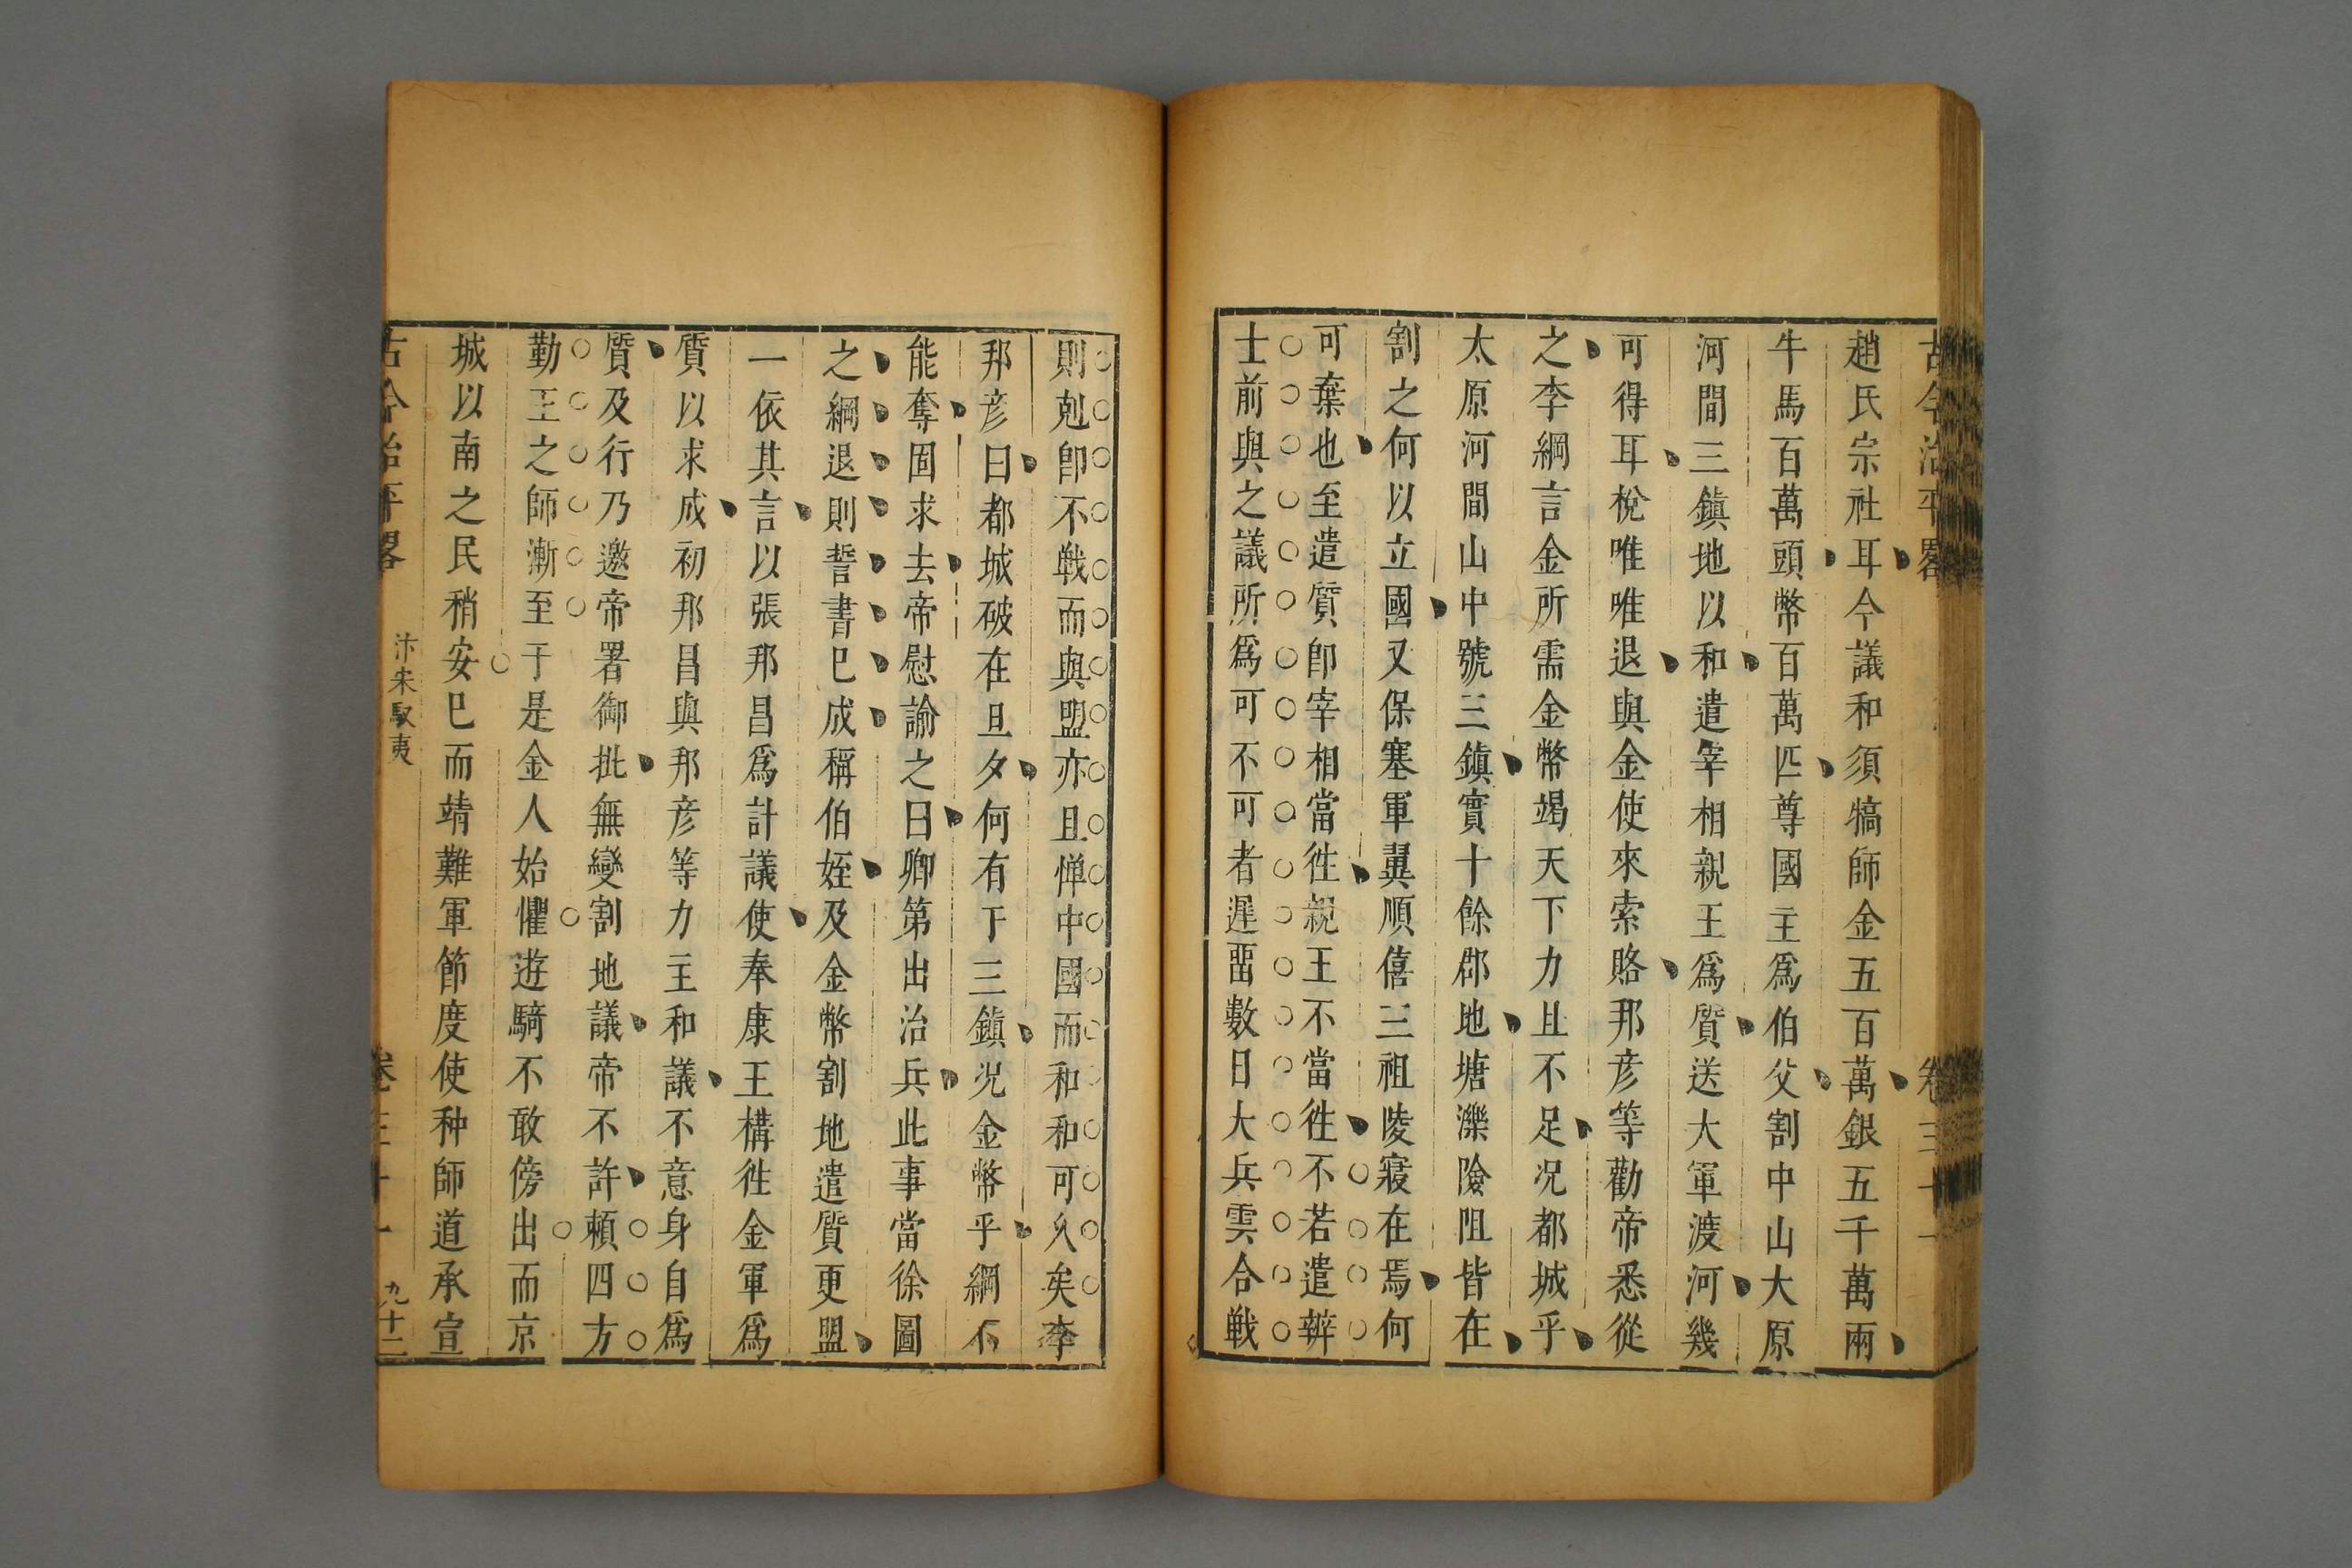 古今治平畧 卷三十一
趙氏宗社耳今議和須犒師金五百萬銀五千萬兩
牛馬百萬頭幣百萬匹尊國主爲伯父割中山大原
河間三鎮地以和遣宰相親王爲質送大軍渡河幾
可得耳梲唯唯退與金使來索賂邦彦等勸帝悉從
之李綱言金所需金幣竭天下力且不足况都城乎
太原河間山中號三鎮實十餘郡地塘濼險阻皆在
割之何以立國又保塞軍翼順僖三祖陵寢在焉何
可棄也至遣質卽宰相當徃親王不當徃不若遣辨
士前與之議所爲可不可者遲畱數日大兵雲合戦
則剋卽不戦而與盟亦且憚中國而和和可乆矣李
邦彦曰都城破在旦夕何有于三鎮况金幣乎綱不
能奪固求去帝慰諭之曰卿第出治兵此事當徐圖
之綱退則誓書巳成稱伯姪及金幣割地遣質更盟
一依其言以張邦昌爲計議使奉康王構徃金軍爲
質以求成初邦昌與邦彦等力主和議不意身自爲
質及行乃邀帝署御批無變割地議帝不許頼四方
勤王之師漸至于是金人始懼遊騎不敢傍出而京
城以南之民稍安巳而靖難軍節度使种師道承宣
古今治平畧 汴宋馭夷 卷三十一 九十二